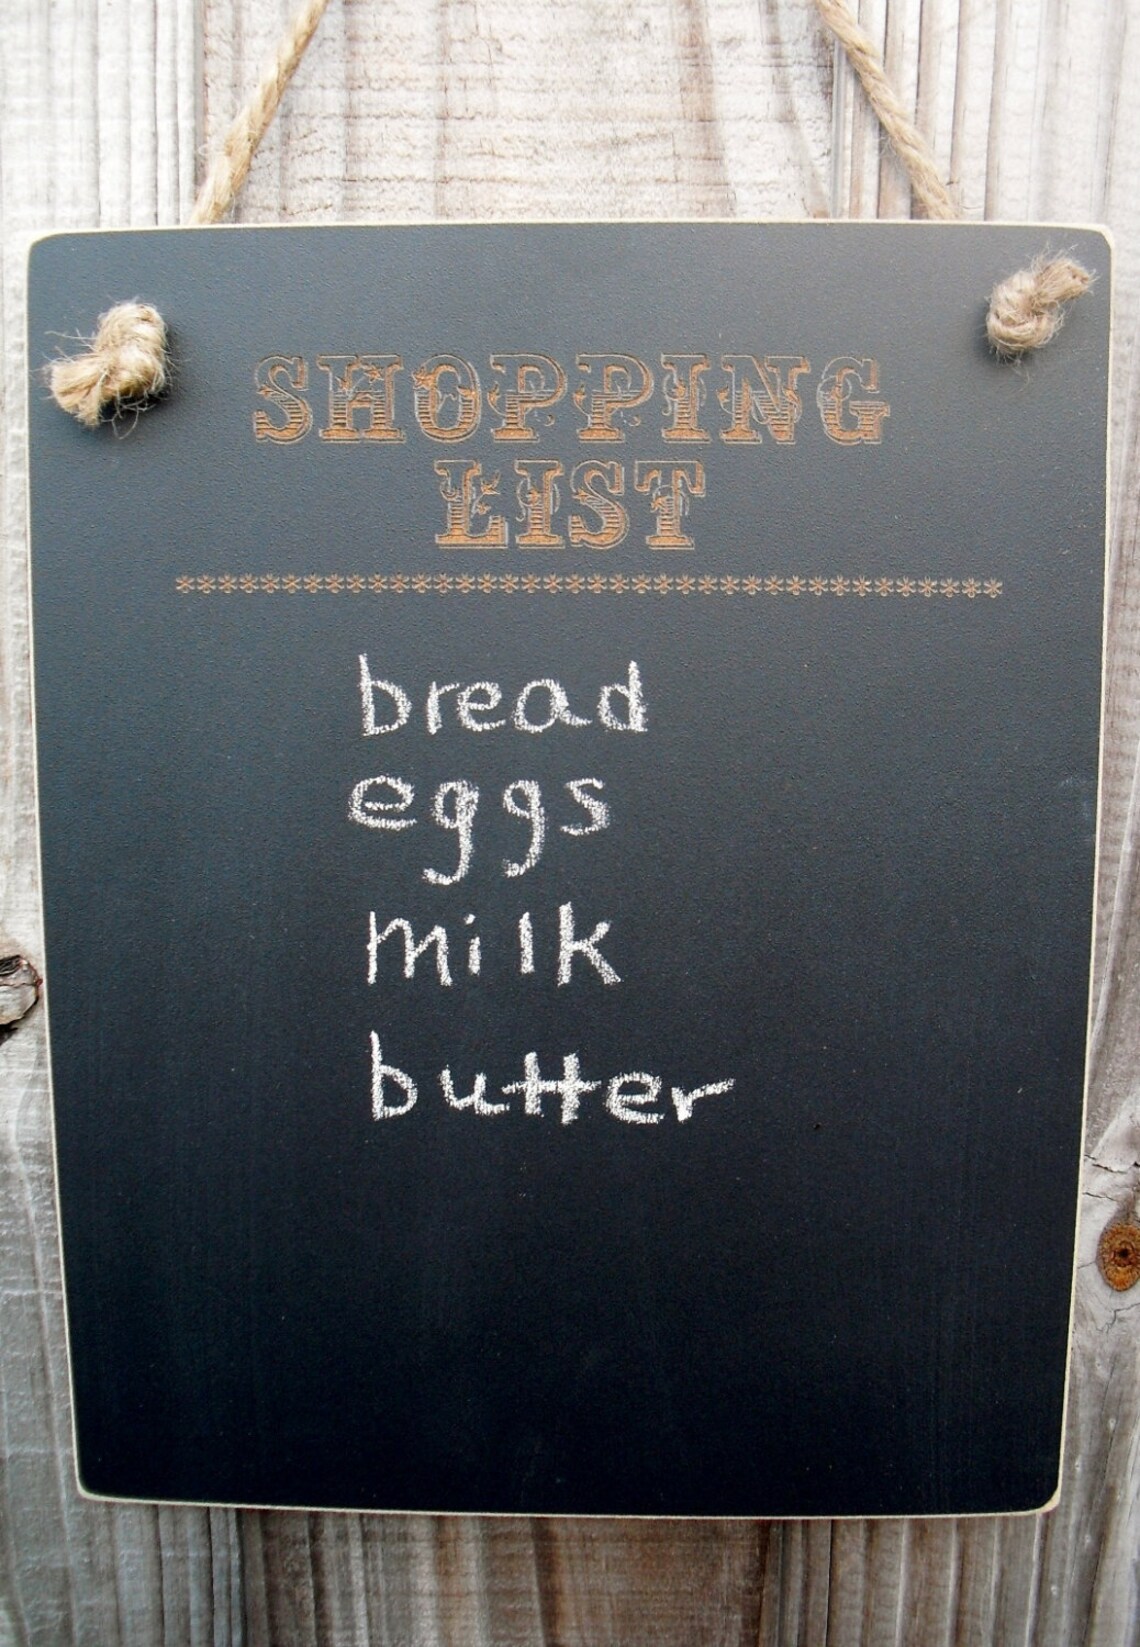 SHOPPING
LIST
bread
eggs
milk
butter